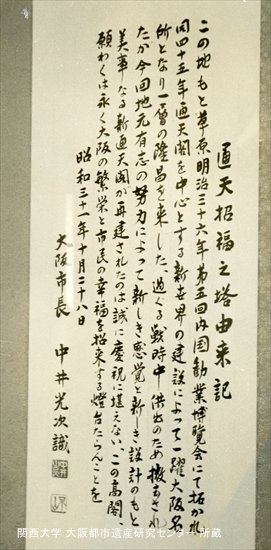 通天招福之塔由来記
この地もと草原明治三十六年第五回内国勧業博覧会にて拓かれ
同四十五年通天閣を中心とする新世界の建設によって一躍大阪名
所となり一層の隆昌を来した、過ぐる戦時中供出のため撤去され
たが今回地元有志の努力によって新しき感覚と新しき設計のもと
美事なる新通天閣が再建されたのは誠に慶祝に堪えないこの高閣
願わくは永く大阪の繁栄と市民の幸福を招来する燈台たらんことを
昭和三十一年十月二十八日
大阪市長　中井光次識
関西大学 大阪都市遺産研究センター 所蔵